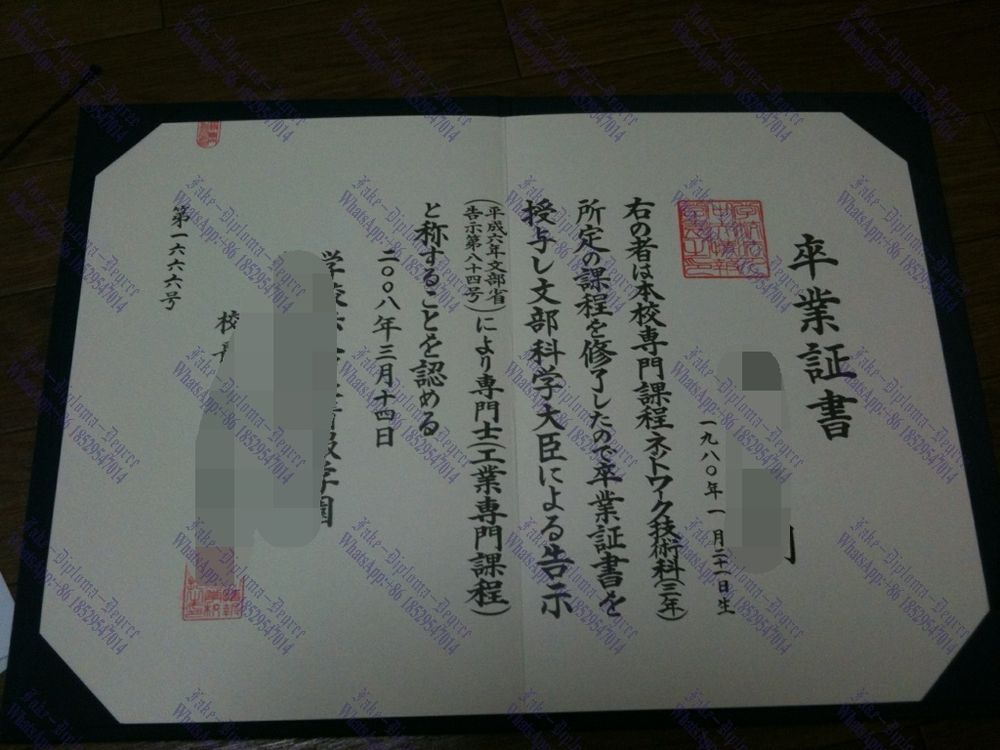 卒業証書
一九八〇年一月二十一日生
右の者は本校専門課程ネットワーク技術科(三年)
所定の課程を修了したので卒業証書を
授与し文部科学大臣による告示
(平成六年文部省
告示第八十四号)により専門士(工業専門課程)
と称することを認める
二〇〇八年三月十四日
学園
校
第一六六六号
Fake-Diploma-Degree
WhatsApp:+86 18529547014